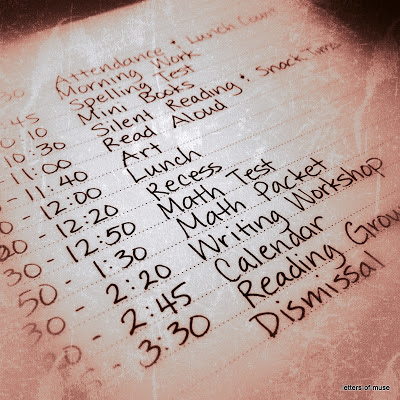 Attendance : Lunch Count
30 Morning Work
45 Spelling Test
10 Mini Books
10:30 Silent Reading : Snack Time
- 11:00 Read Aloud
- 11:40 Art
- 12:00 Lunch
- 12:20 Recess
30 - 12:50 Math Test
- 1:30 Math Packet
30 - 2:20 Writing Workshop
50 - 2:45 Calendar
20 - 3:30 Reading Grou
Dismissal
etters of muse